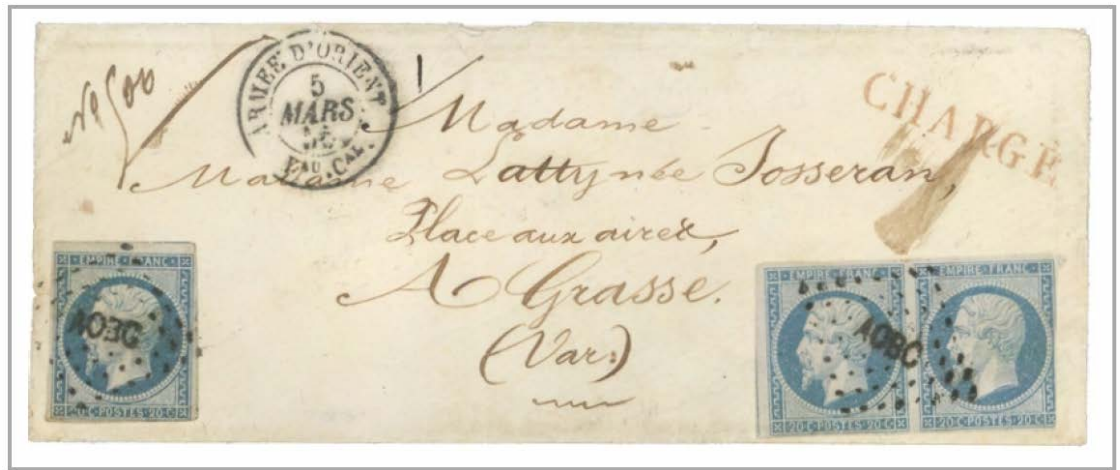 N° 500
ARMÉE D'ORIENT
5
MARS
Bau. Cal.
CHARGÉ
Madame
Madame Latty née Josseran,
Place aux aires,
A Grasse.
(Var.)
EMPIRE FRANC
20 C POSTES 20 C
EMPIRE FRANC
20 C POSTES 20 C
EMPIRE FRANC
20 C POSTES 20 C
AOBC